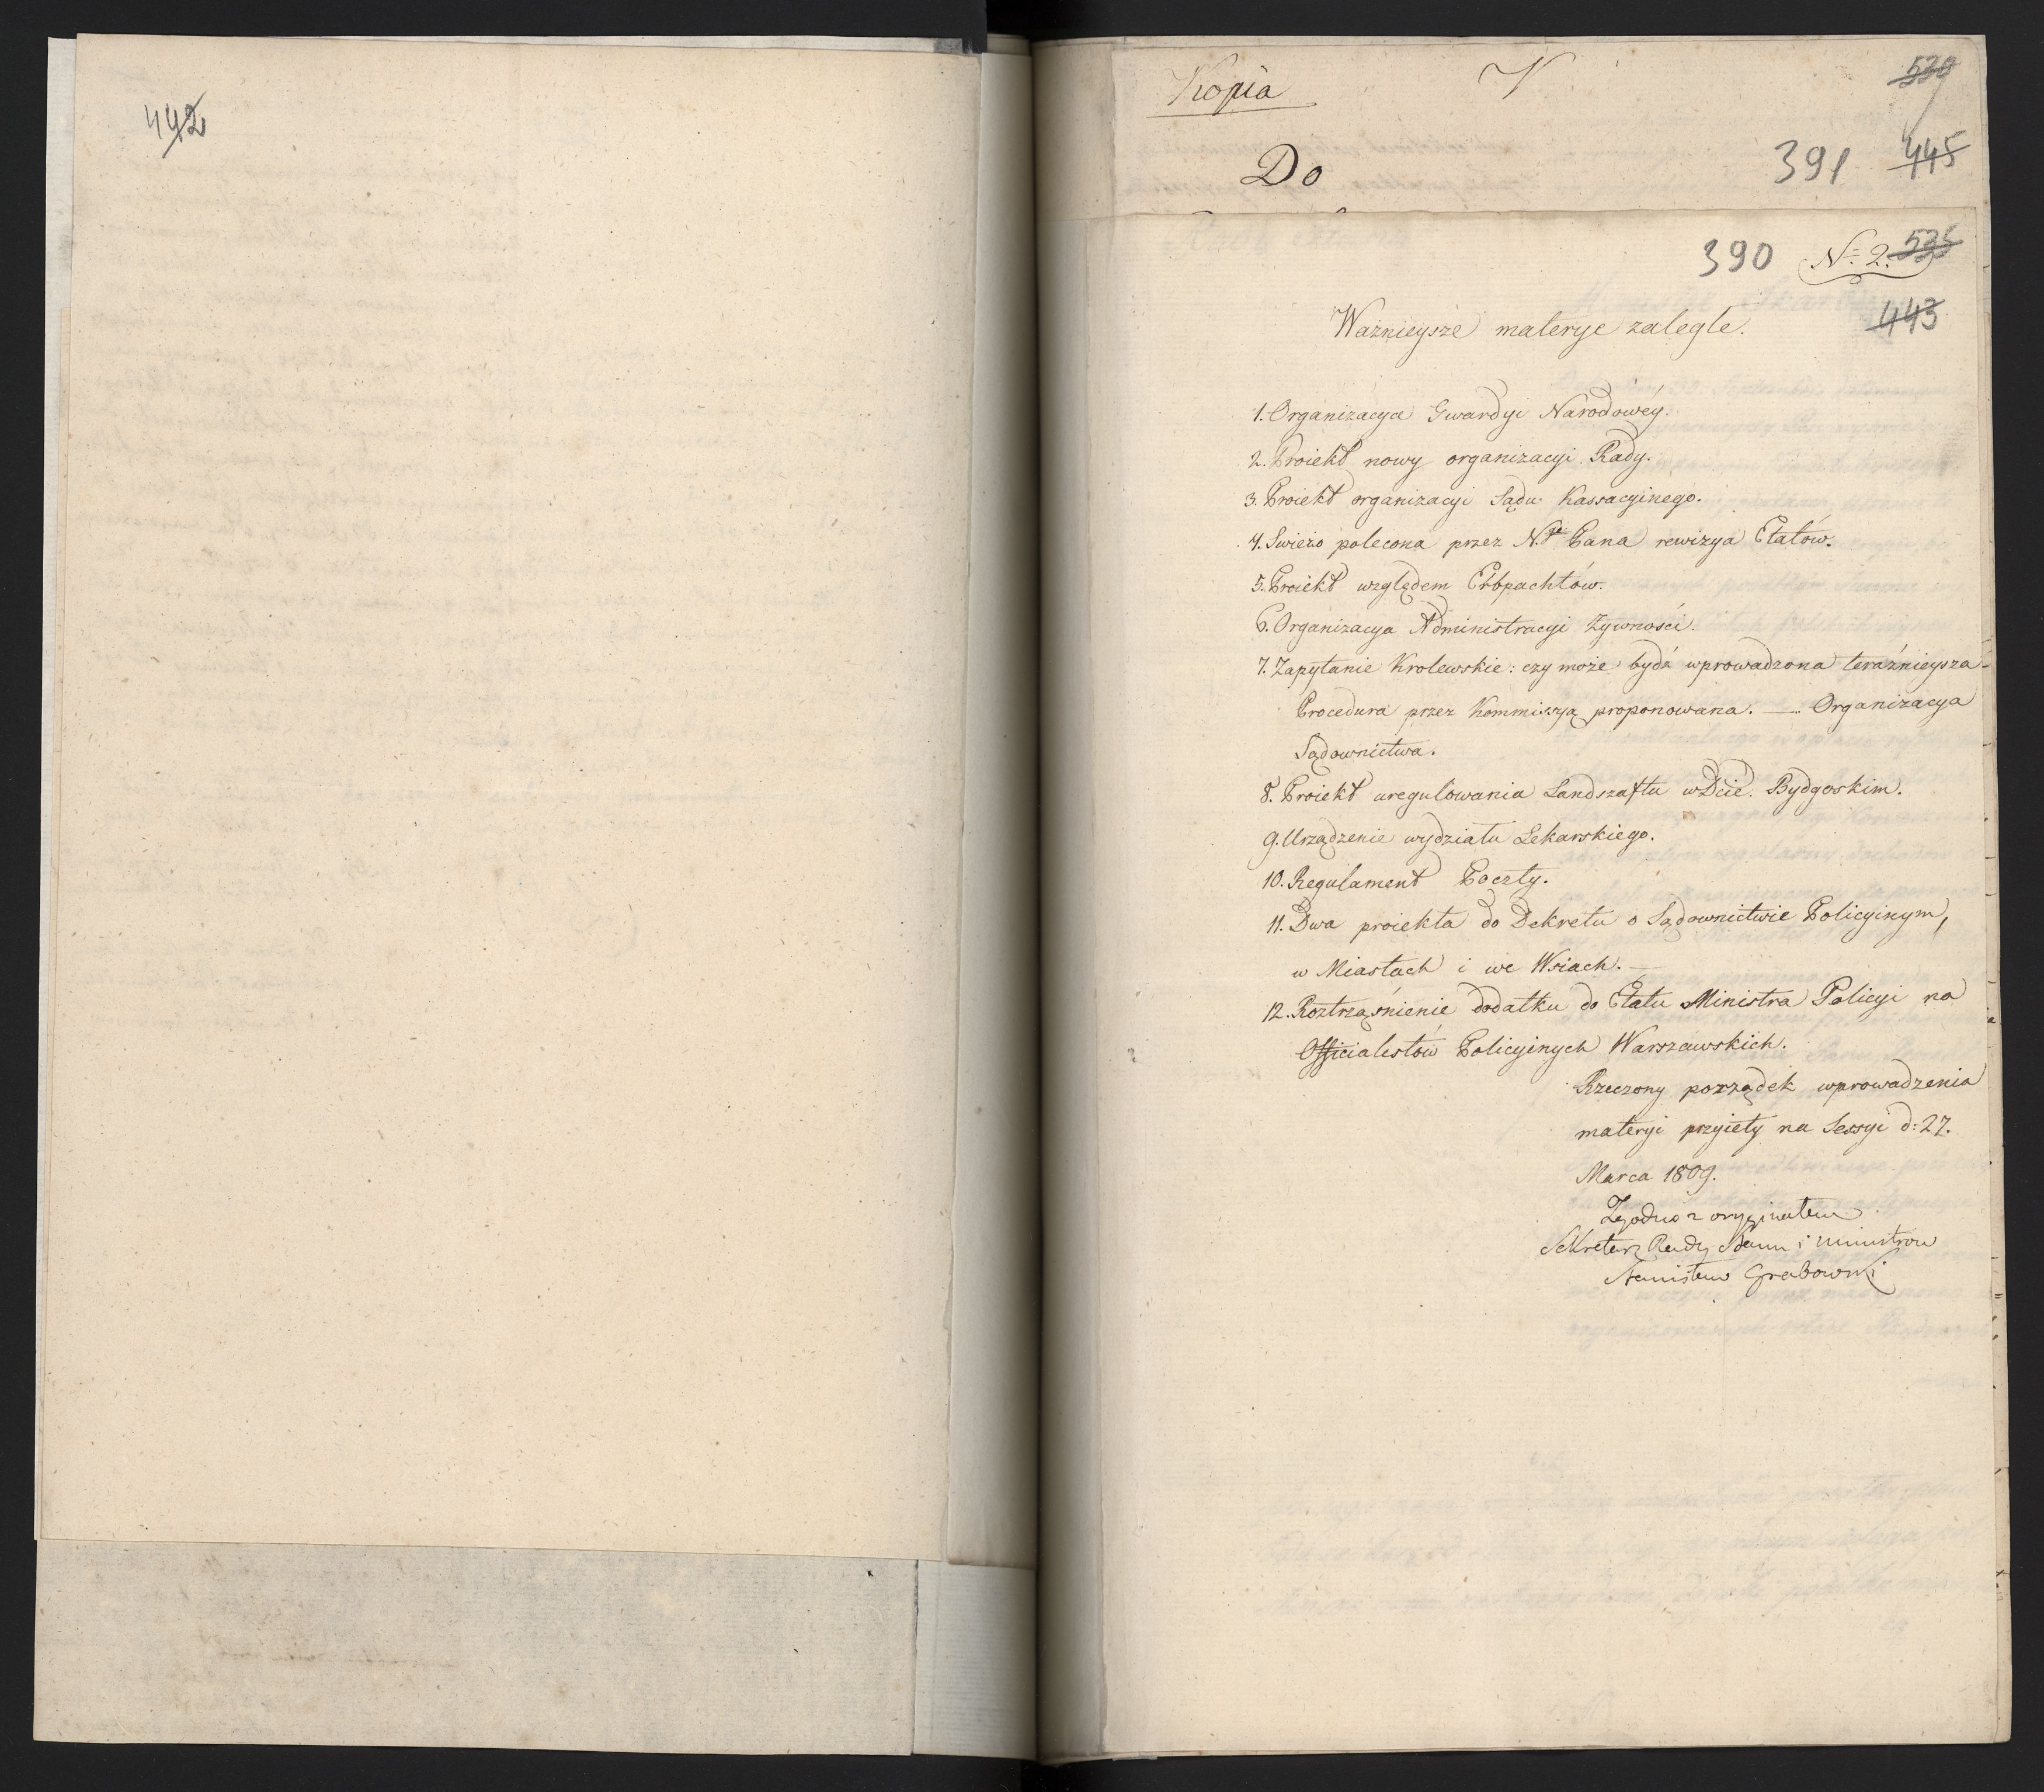 442
Kopia
V
539
Do
391 445
390 No 2. 535
443
Ważnieysze materye zaległe.
1. Organizacya Gwardyi Narodowéy.
2. Proiekt nowy organizacyi Rady.
3. Proiekt organizacyi Sądu Kassacyinego.
4. Swieżo polecona przez N. Pana rewizya Etatów.
5. Proiekt względem Erbpachtów.
6. Organizacya Administracyi Żywności.
7. Zapytanie Krolewskie: czy może bydź wprowadzona teraźnieysza
Procedura przez Kommissyą proponowana. — Organizacya
Sądownictwa.
8. Proiekt uregulowania Landszaftu w Dcie. Bydgoskim.
9. Urządzenie wydziału Lekarskiego.
10. Regulament Poczty.
11. Dwa proiekta do Dekretu o Sądownictwie Policyinym,
w Miastach i we Wsiach. —
12. Roztrząśnienie dodatku do Etatu Ministra Policyi na
Officialistów Policyinych Warszawskich.
Rzeczony porządek wprowadzenia
materyi przyięty na Sessyi d: 27.
Marca 1809.
Zgodno z oryginałem
Sekretarz Rady Stanu i Ministrow
Stanisław Grabowski